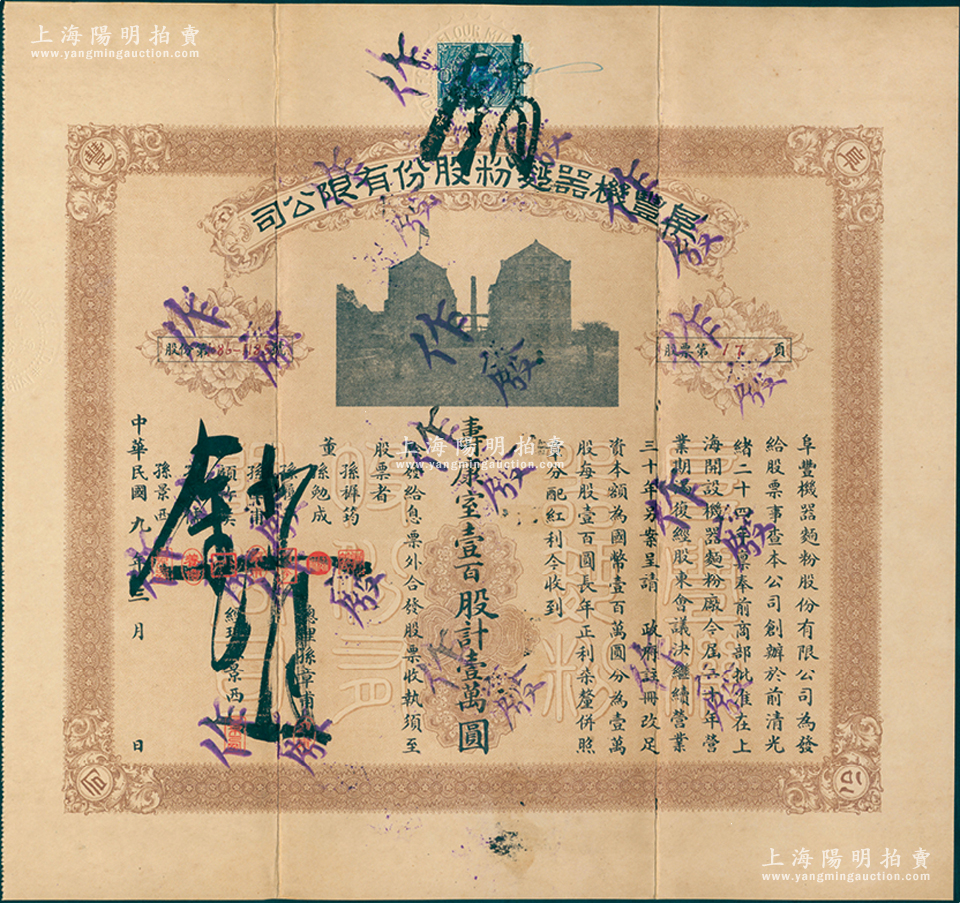 上海陽明拍賣
www.yangmingauction.com
阜豐機器麵粉股份有限公司
阜
豐
公
司
股票第17頁
股份第
號
阜豐機器麵粉股份有限公司為發
給股票事查本公司創辦於前清光
緒二十四年稟奉前商部批准在上
海開設機器麵粉廠今屆二十年營
業期滿復經股東會議決繼續營業
三十年另案呈請 政府註冊改足
資本額為國幣壹百萬圓分為壹萬
股每股壹百圓長年正利柒釐併照
分配紅利今收到
壽康室壹百股計壹萬圓
發給息票外合發股票收執須至
股票者
董
孫犀筠
孫勉成
孫景西
總理孫章甫
經理孫景西
中華民國九年三月 日
作廢
上海陽明拍賣
www.yangmingauction.com
上海陽明拍賣
www.yangmingauction.com